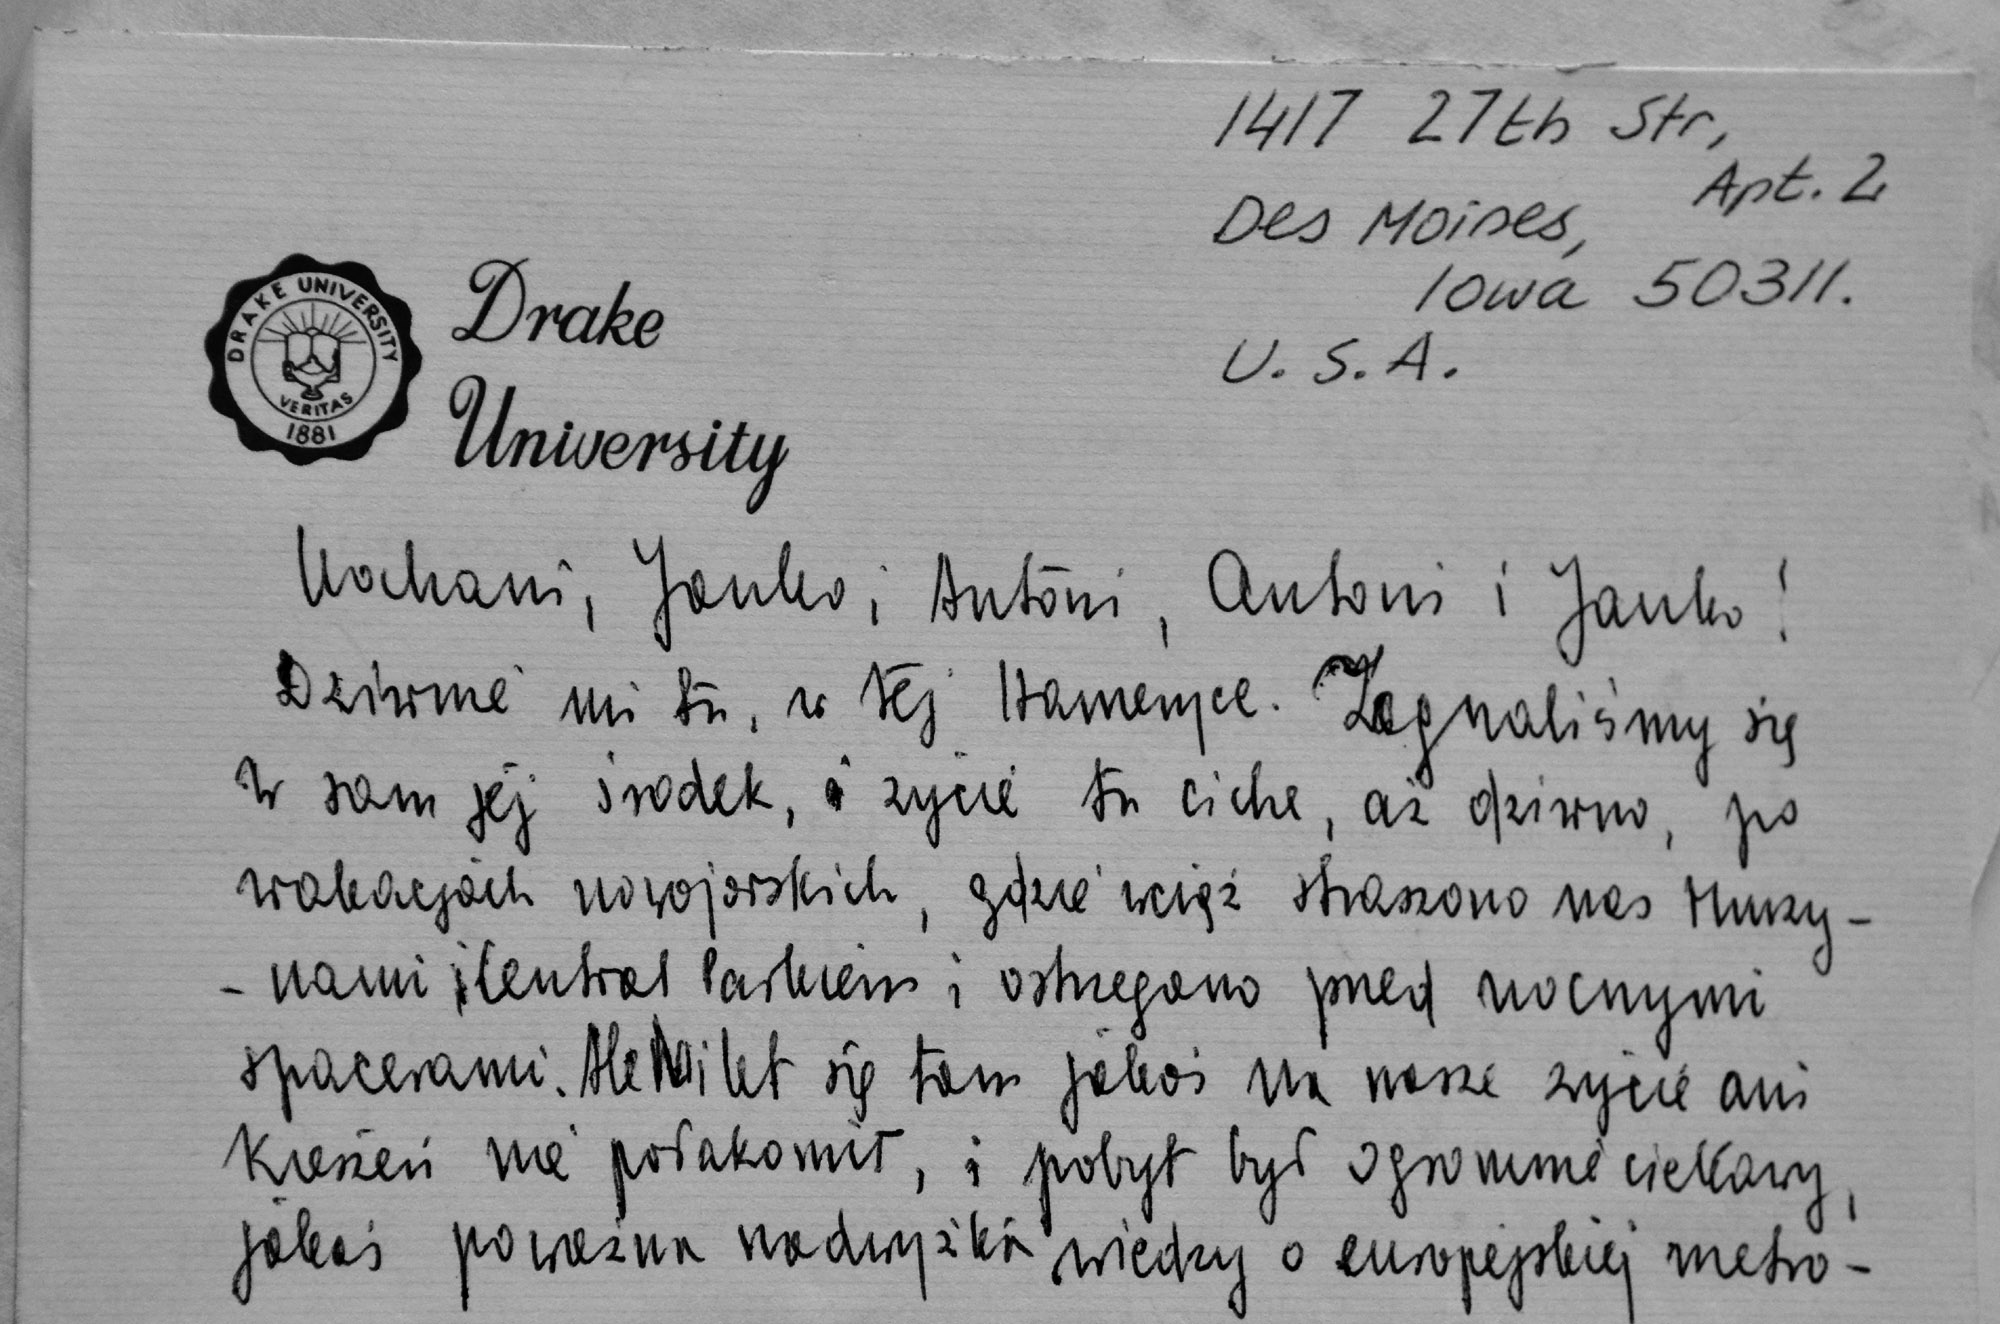 1417 27th Str,
Apt. 2
Des Moines,
Iowa 50311.
U. S. A.
DRAKE UNIVERSITY
VERITAS
1881
Drake
University
Kochani, Janko i Antoni, Antoni i Janko!
Dziwnie mi tu, w tej Hameryce. Zagnaliśmy się
w sam jej środek, i życie tu ciche, aż dziwno, po
wakacjach nowojorskich, gdzie wciąż straszono nas Murzy-
-nami i Central Parkiem i ostrzegano przed nocnymi
spacerami. Ale Nikt się tam jakoś na nasze życie ani
kieszeń nie połakomił, i pobyt był ogromnie ciekawy,
jakaś poważna nadwyżka wiedzy o europejskiej metro-